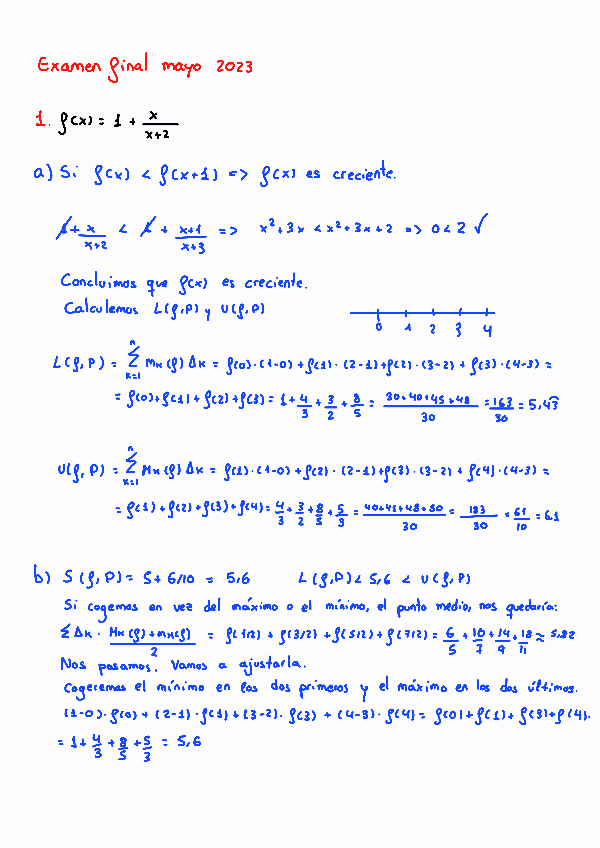 Examen final mayo 2023
1. f(x) = 1 + x/(x+2)
a) Si f(x) < f(x+1) => f(x) es creciente.
1 + x/(x+2) < 1 + (x+1)/(x+3) => x²+3x < x²+3x+2 => 0 < 2 ✓
Concluimos que f(x) es creciente.
Calculemos L(f,P) y U(f,P)
0 1 2 3 4
L(f,P) = Σ_{k=1}^{n} mk(f) Δk = f(0)·(1-0) + f(1)·(2-1) + f(2)·(3-2) + f(3)·(4-3) =
= f(0)+f(1)+f(2)+f(3) = 1 + 4/3 + 3/2 + 8/5 = (30+40+45+48)/30 = 163/30 = 5,43
U(f,P) = Σ_{k=1}^{n} Mk(f) Δk = f(1)·(1-0) + f(2)·(2-1) + f(3)·(3-2) + f(4)·(4-3) =
= f(1)+f(2)+f(3)+f(4) = 4/3 + 3/2 + 8/5 + 5/3 = (40+45+48+50)/30 = 183/30 = 61/10 = 6.1
b) S(f,P) = 5 + 6/10 = 5,6 L(f,P) < 5,6 < U(f,P)
Si cogemos en vez del máximo o el mínimo, el punto medio, nos quedaría:
Σ Δk · (Mk(f)+mk(f))/2 = f(1/2) + f(3/2) + f(5/2) + f(7/2) = 6/5 + 10/7 + 14/9 + 18/11 ≈ 5,82
Nos pasamos. Vamos a ajustarla.
Cogeremos el mínimo en los dos primeros y el máximo en los dos últimos.
(1-0)·f(0) + (2-1)·f(1) + (3-2)·f(3) + (4-3)·f(4) = f(0)+f(1)+f(3)+f(4).
= 1 + 4/3 + 8/5 + 5/3 = 5,6